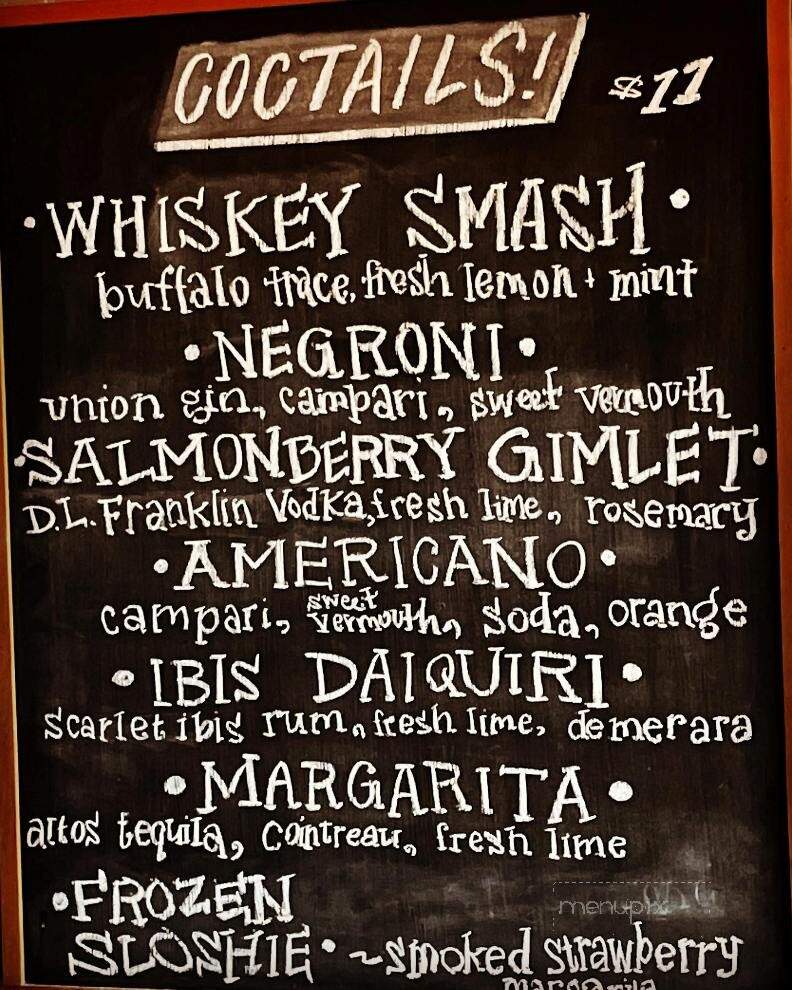 COCTAILS! $11
• WHISKEY SMASH •
buffalo trace, fresh lemon + mint
• NEGRONI •
union gin, campari, sweet vermouth
• SALMONBERRY GIMLET •
D.L. Franklin Vodka, fresh lime, rosemary
• AMERICANO •
campari, sweet vermouth, soda, orange
• IBIS DAIQUIRI •
scarlet ibis rum, fresh lime, demerara
• MARGARITA •
altos tequila, cointreau, fresh lime
• FROZEN
SLOSHIE • ~smoked strawberry
margarita